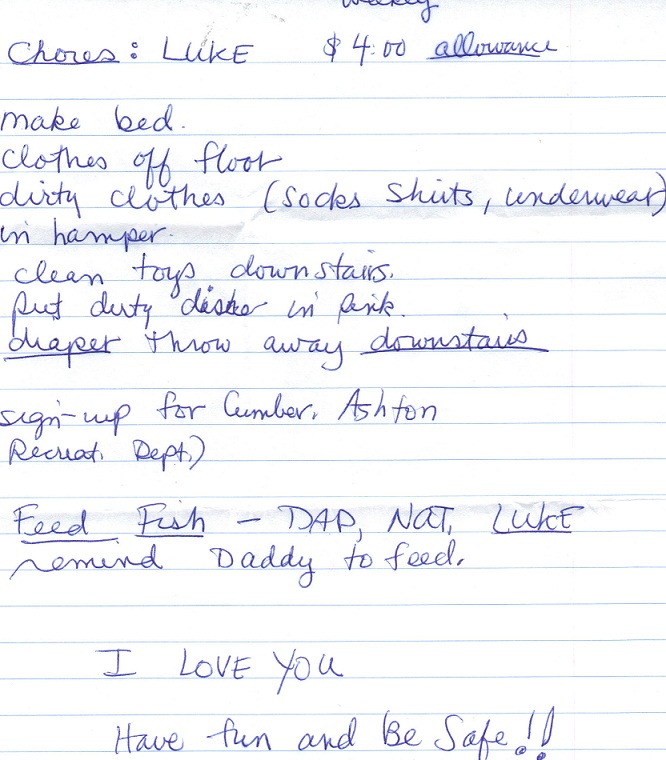 weekly
Chores: LUKE $4.00 allowance
make bed.
clothes off floor
dirty clothes (socks shirts, underwear)
in hamper.
clean toys downstairs.
put dirty dishes in sink.
diaper throw away downstairs
sign-up for Cumber. Ashton
Recreat. Dept.)
Feed Fish - DAD, NAT, LUKE
remind Daddy to feed.
I LOVE YOU
Have fun and Be Safe!!